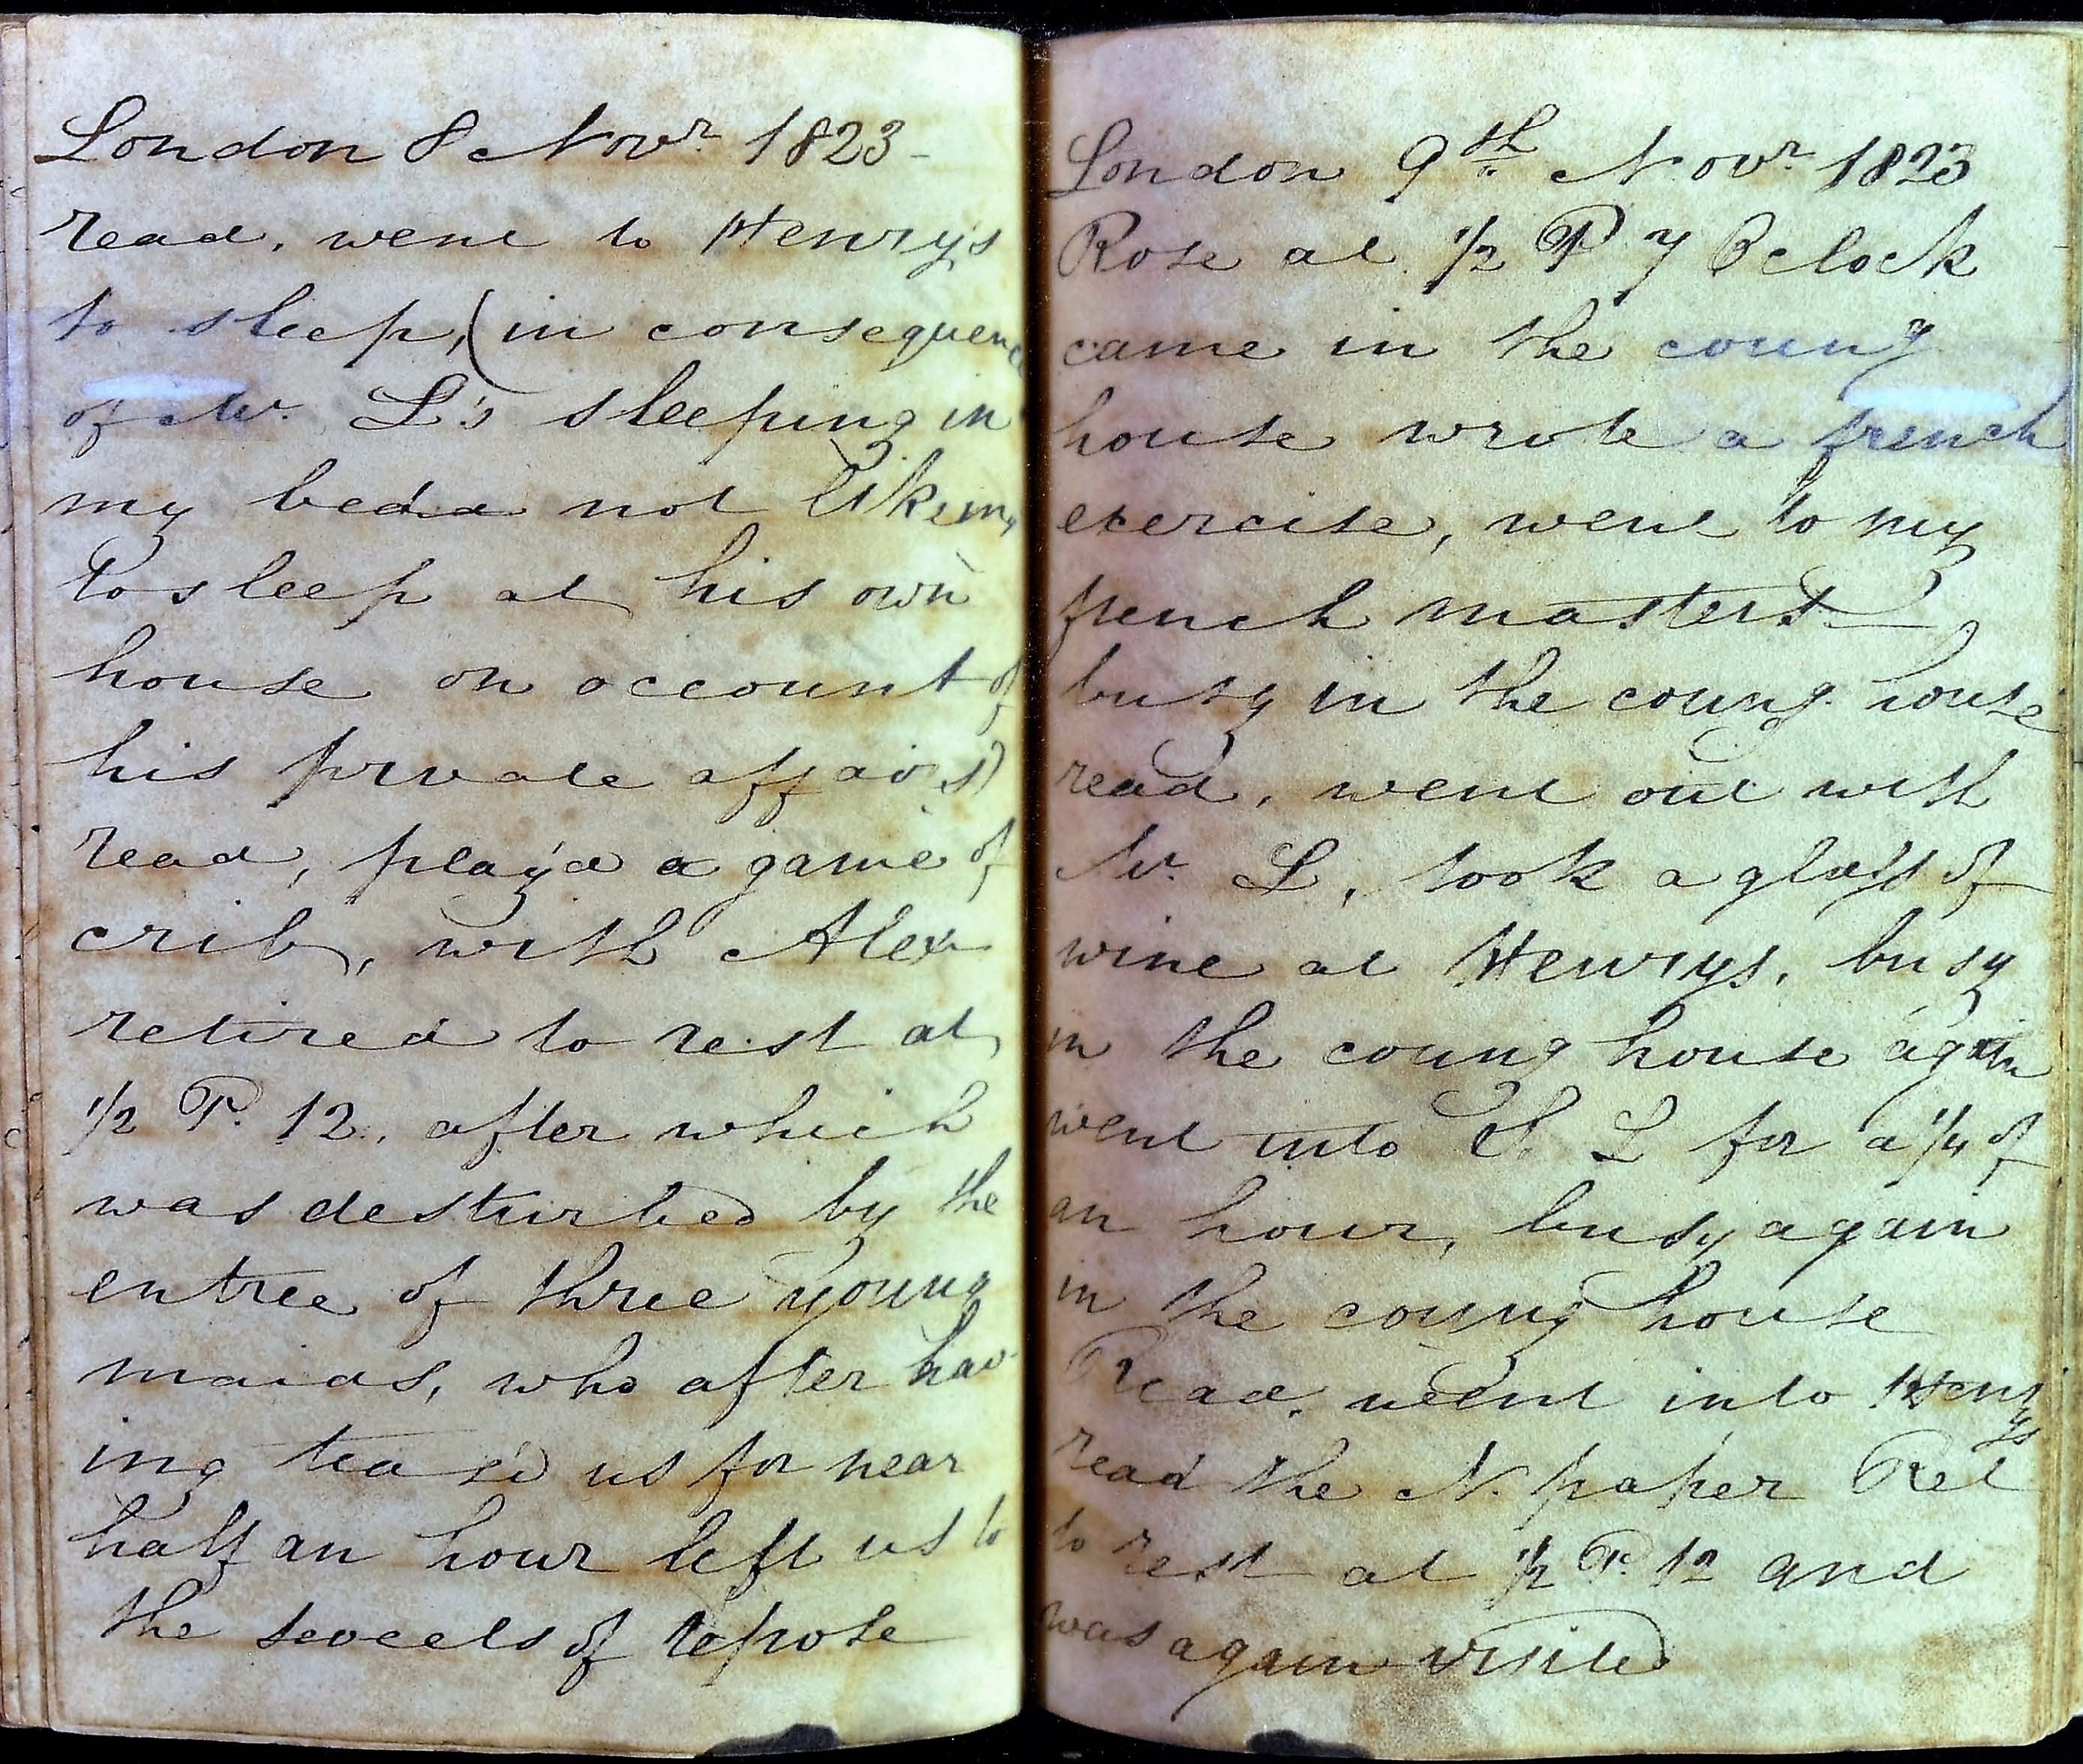 London 8 Novr. 1823 -
read, went to Henrys
to sleep, (in consequence
of Mr. L's sleeping in
my bed not likeing
to sleep at his own
house on account of
his private affairs)
read, play'd a game of
crib, with Alexr
retired to rest at
1/2 P. 12., after which
was desturbed by the
entree of three young
maids, who after hav-
ing teas'd us for near
half an hour left us to
the sweets of repose
London 9th Novr. 1823
Rose at 1/2 P 7 Oclock
came in the coung
house wrote a french
exercise, went to my
french masters
busy in the coung. house
read, went out with
Mr. L, took a glass of
wine at Henrys, busy
in the coung house again
went into C. L for a 1/4 of
an hour, busy again
in the coung house
Read, went into Henrys
read the N. paper Ret
to rest at 1/2 P. 12 and
was again visited